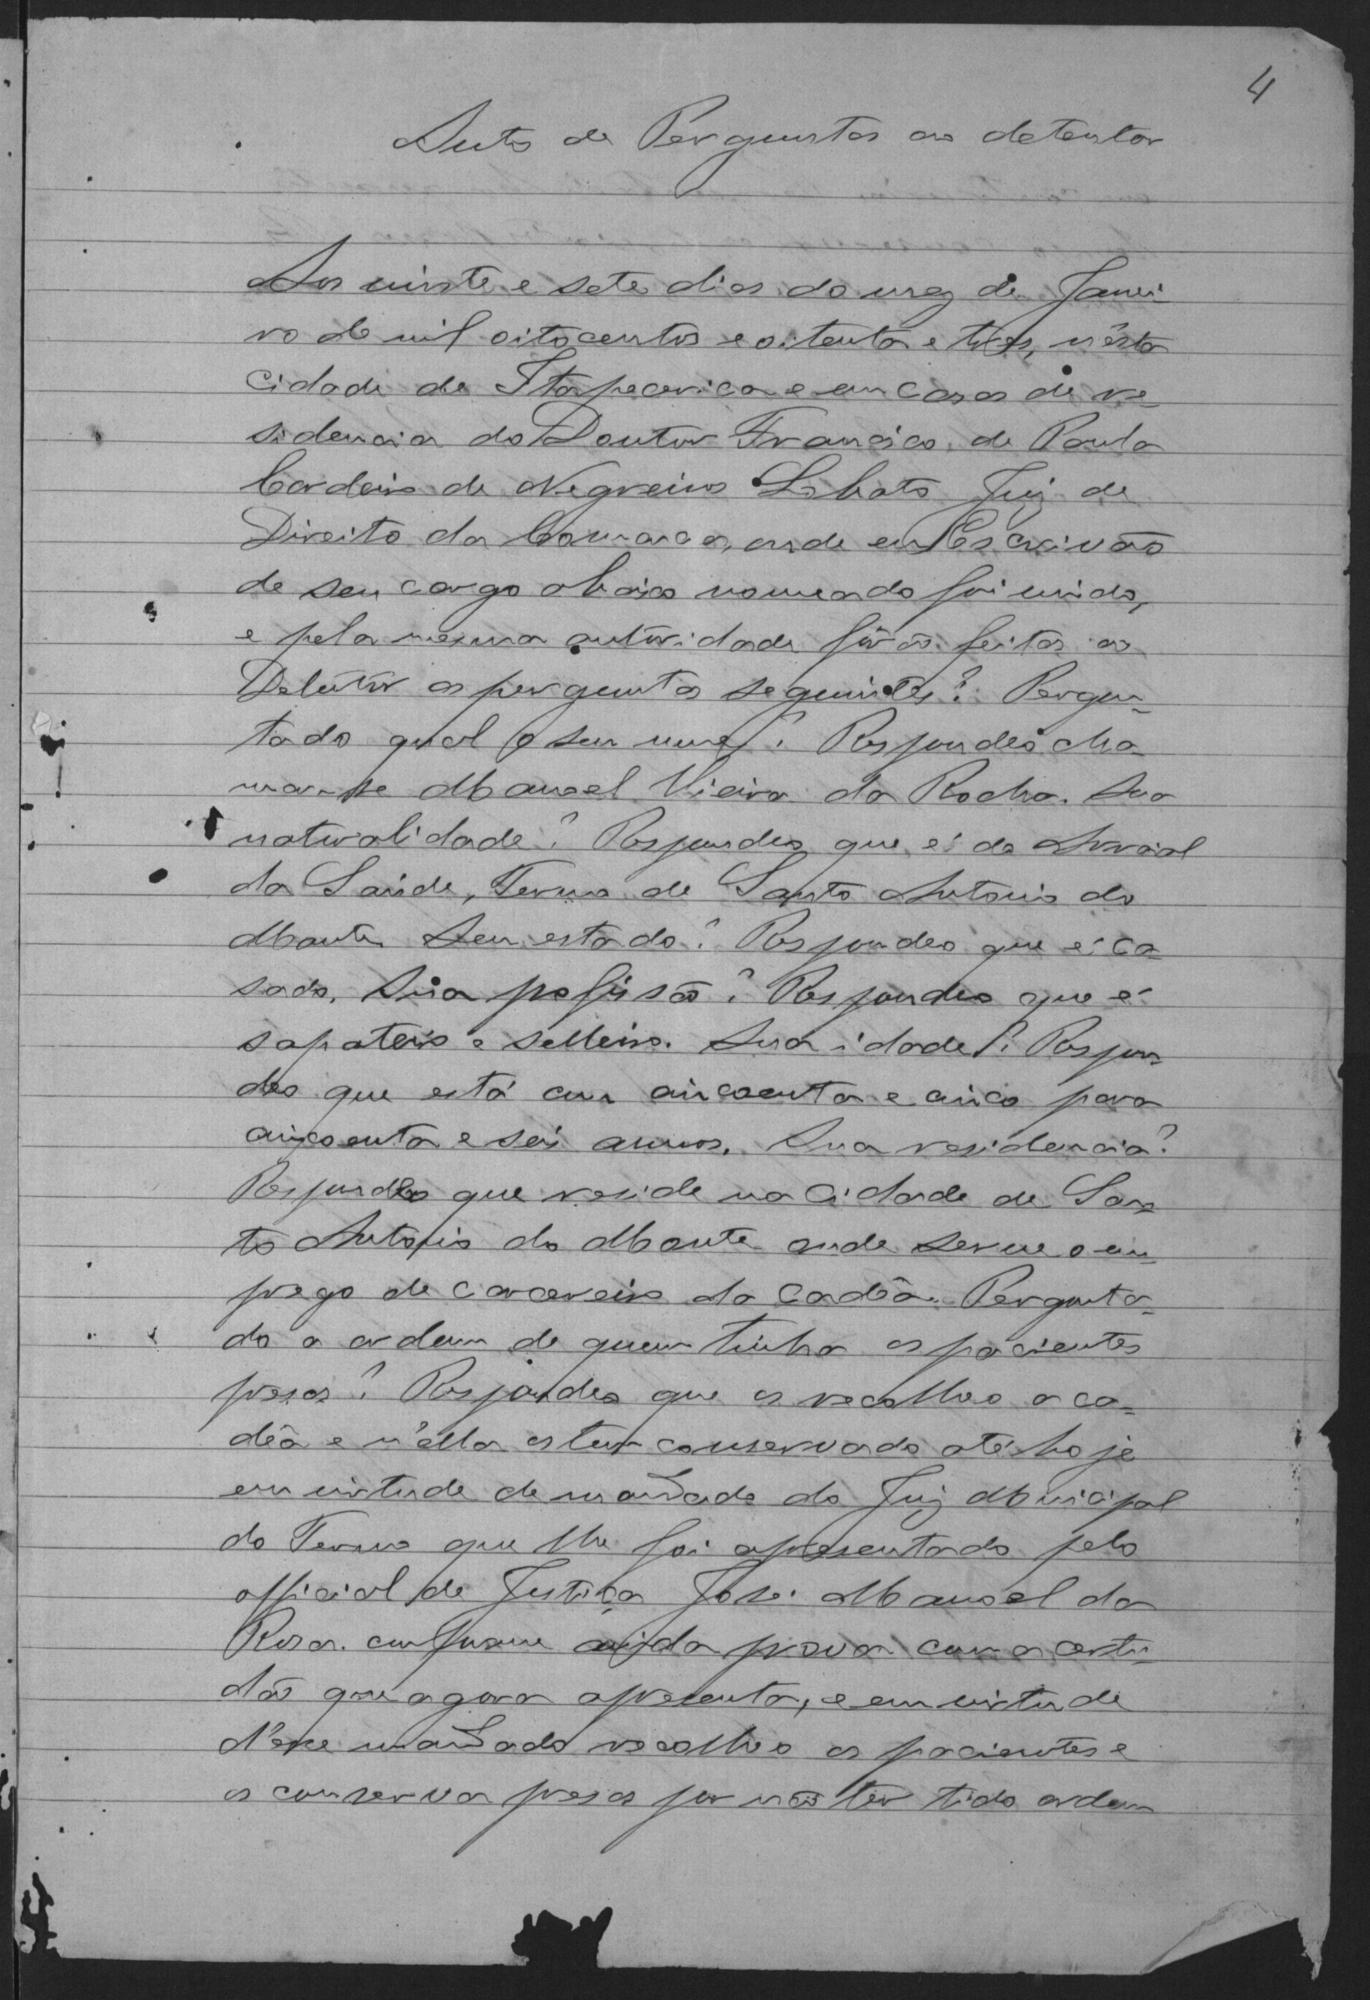 4
Auto de Perguntas ao detentor
Aos vinte e sete dias do mez de Janei-
ro de mil oitocentos e oitenta e tres, n'ésta
Cidade de Itapecerica e em casas de re-
sidencia do Doutor Francisco de Paula
Cordeiro de Negreiros Lobato Juiz de
Direito da Comarca, onde eu Escrivão
de seu cargo abaixo nomeado fui vindo,
e pela mesma autoridade fôrão feitas ao
Detentôr as perguntas seguintes? Pergun-
tado qual o seu nome? Respondeo cha-
mar-se Manoel Vieira da Rocha. Sua
naturalidade? Respondeo que é do Arraial
da Saúde, Termo de Santo Antonio do
Monte. Seu estado? Respondeo que é ca-
sado. Sua profissão? Respondeo que é
sapateiro e selleiro. Sua idade? Respon-
deo que está em cincoenta e cinco para
cincoenta e seis annos. Sua residencia?
Respondeo que reside na Cidade de San-
to Antonio do Monte onde serve o em-
prego de Carcereiro da Cadêa. Pergunta-
do a ordem de quem tinha os pacientes
presos? Respondeo que os recolheo a ca-
dêa e n'ella os tem conservado até hoje
em virtude de mandado do Juiz Municipal
do Termo que lhe foi apresentado pelo
official de Justiça José Manoel da
Rosa. conforme ainda prova com a certi-
dão que agora apresenta, e em virtude
d'esse mandado recolheo os pacientes e
os conserva presos por não ter tido ordem